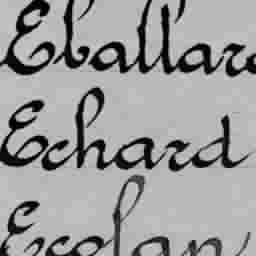 Eballard
Echard
Ecolan